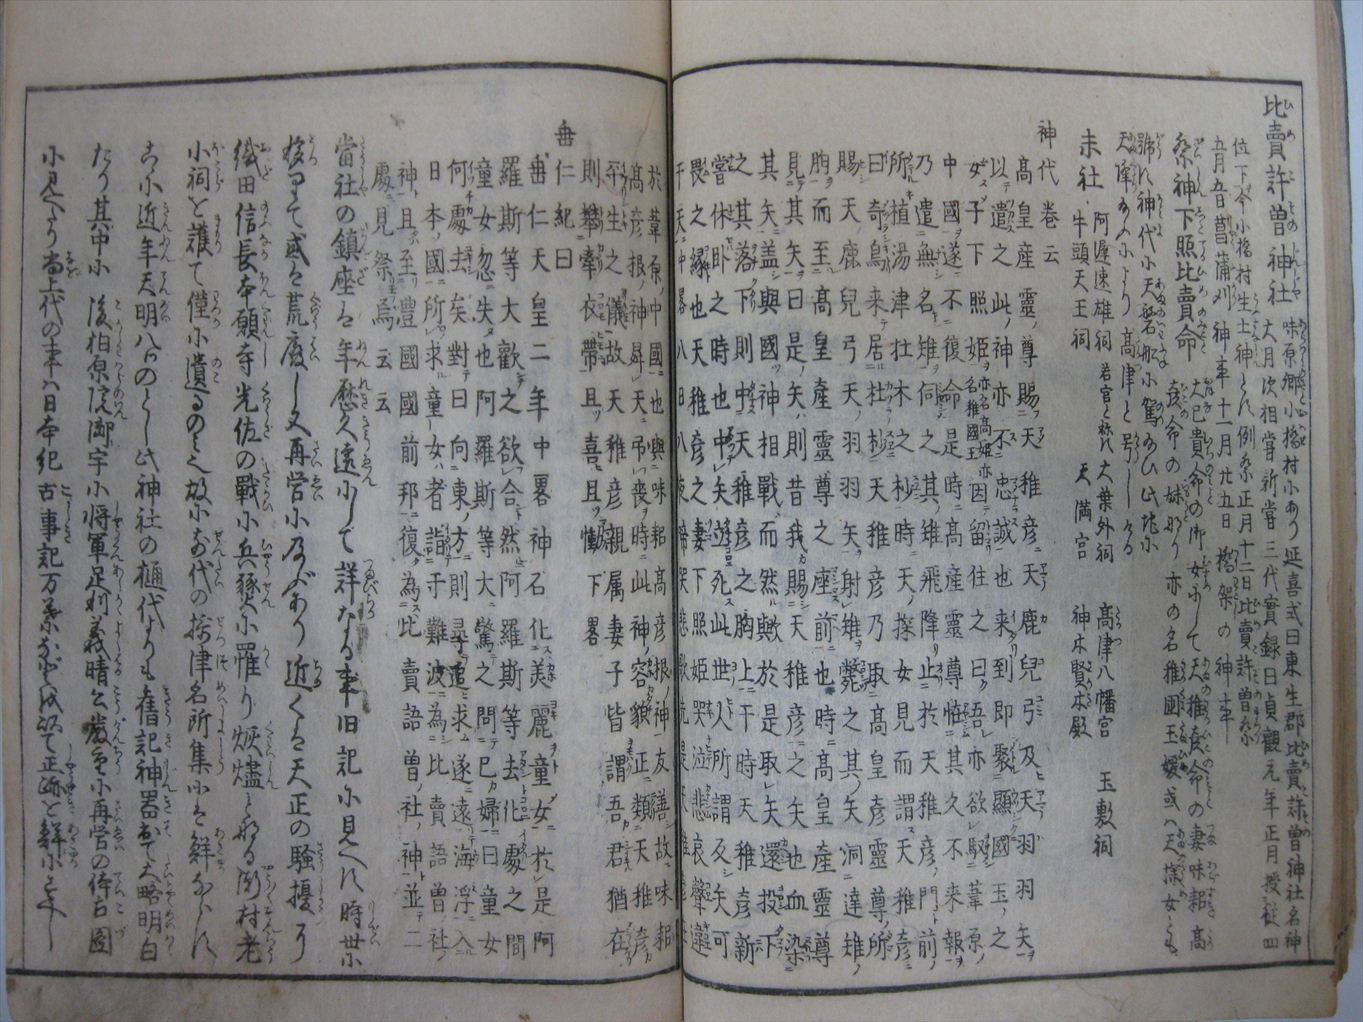 比賣許曽神社 味原郷小橋村にあり延喜式曰東生郡比賣許曽神社名神
大月次相嘗新嘗三代實録曰貞觀元年正月授従四
位下今小橋村生土神とす例祭正月十二日比賣許曽祭
五月五日菖蒲刈神事十一月廿五日橋架の神事
祭神下照比賣命 大己貴命の御女にして天稚彦命の妻味耜高
彦命の妹なり亦の名稚國玉媛或ハ天探女とも
號す神代に天磐船に駕給ひ此地に
天降給ふにより高津と号しける
末社 阿遲速雄祠 若宮と称ス 大葉外祠 高津八幡宮 玉敷祠
牛頭天王祠 天満宮 神木賢木殿
神代巻云
高皇産靈ノ尊賜天稚彦天鹿兒弓及天羽羽矢
以遣之此ノ神亦不忠誠也来到即聚顯國玉之
女子下照姫亦名高姫亦名稚國玉因留住之曰吾亦欲馭葦原ノ
中國遂不復命是時高産靈尊恠其久不来報
乃遣無名雉伺之其ノ雉飛降止於天稚彦門前
所植湯津杜木之杪時天探女見而謂天稚彦
曰奇鳥来居杜杪天稚彦乃取高皇彦靈尊所
賜天鹿兒弓天ノ羽羽矢射雉斃之其ノ矢洞達雉ノ
胸而至高皇産靈尊之座前也時高皇産靈尊
見其矢曰是ノ矢則昔我賜天稚彦之矢也血染
其矢盖與國ツ神相戰而然歟於是取矢還投下
之其ノ矢落下則中天稚彦之胸上于時天稚彦新
嘗休臥之時也中矢遊死此世人所謂反矢可
畏之縁也天稚彦之妻下照姫哭泣悲哀聲達
于天中畧八日八夜啼哭悲歌
於葦原ノ中國也與味耜高彦根ノ神友善故味耜
高彦根ノ神昇天弔喪時此神ノ容貌正類天稚彦
平生之儀故天稚彦親属妻子皆謂吾君猶在
則攀牽衣帶且喜且慟下畧
垂仁紀曰
垂仁天皇二年中畧神石化美麗童女於是阿
羅斯等大歡之欲合然阿羅斯等去化處之間
童女忽失也阿羅斯等大驚之問己婦曰童女
何處去矣對曰向東方則尋追求遂遠海浮入
日本國所求童女者詣于難波為比賣語曽ノ社ノ
神且至豊國國前郡復為比賣語曽ノ社ノ神並二
處見祭焉云云
當社の鎮座は年歴久遠にして詳なる事旧記に見へす時世に
移りて或は荒廢し又再営に及びあり近くは天正の騒擾に
織田信長本願寺光佐の戰に兵豫に罹り灰燼となる閑村老
小祠を護て僅に遺るのミ故に前代の摂津名所集にも鮮ならす
こゝに近年天明八のとし此神社の樋代よりも舊記神器出て大略明白
たり其中に後柏原院御宇に将軍足利義晴公嚴命に再営の倅古圖
に見へたり尚上代の事ハ日本紀古事記万葉などを以て正跡と鮮にすべし